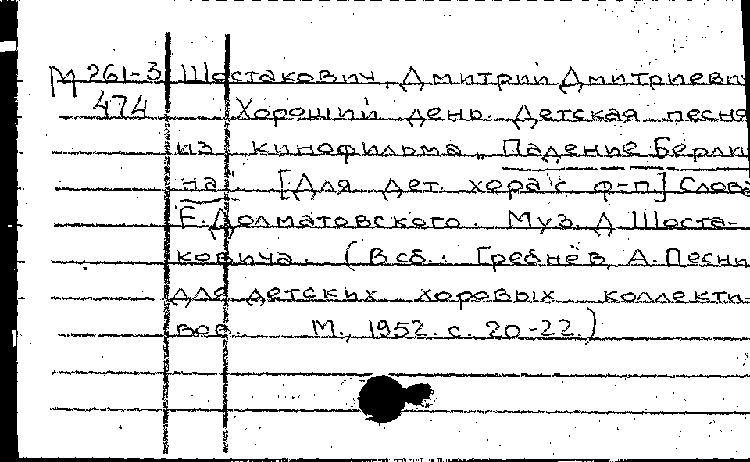 М 261-3 Шостакович, Дмитрий Дмитриевич
474 Хороший день. Детская песня
из кинофильма „Падение Берли-
на". [Для дет. хора с ф-п] Слова
Е. Долматовского. Муз. Д Шоста-
ковича. (В сб.: Гребнёв, А. Песни
для детских хоровых коллекти-
вов. М., 1952. с. 20-22.)